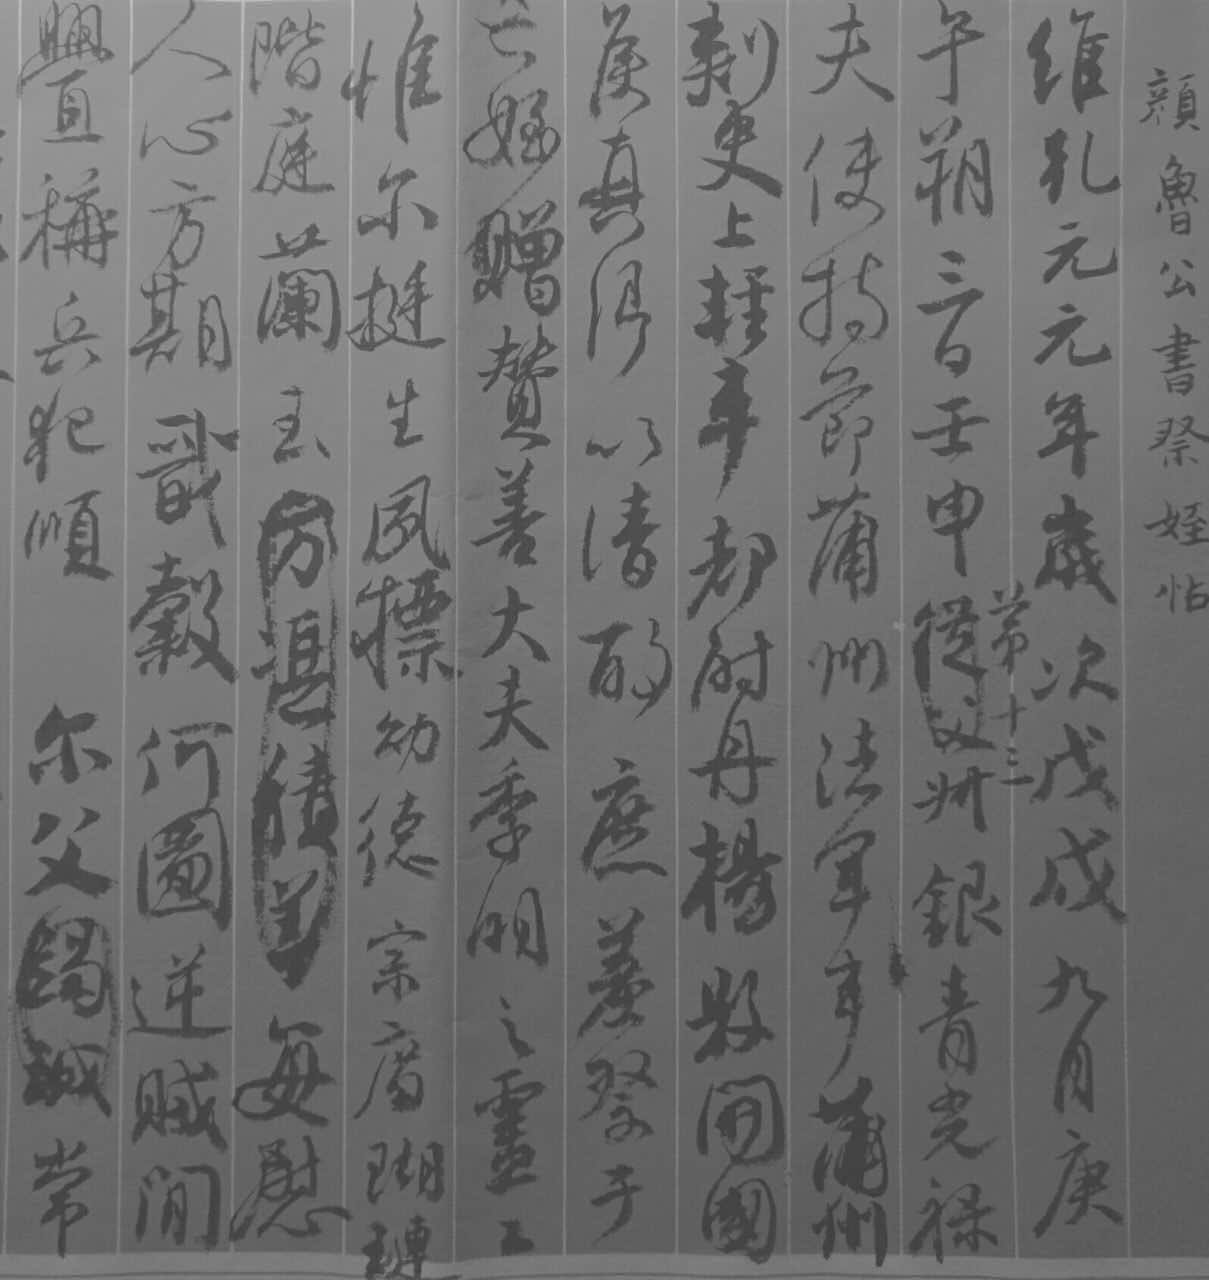 顔魯公書祭姪帖
維乹元元年歲次戊戌九月庚
午朔三日壬申第十三從父叔銀青光禄
夫使持節蒲州諸軍事蒲州
刺史上輕車都尉丹楊縣開國
侯真卿以清酌庶羞祭于
亡姪贈贊善大夫季明之靈曰
惟尔挺生夙標幼德宗廟瑚璉
階庭蘭玉方憑積善每慰
人心方期戩穀何圖逆賊閒
釁稱兵犯順 尔父竭誠常